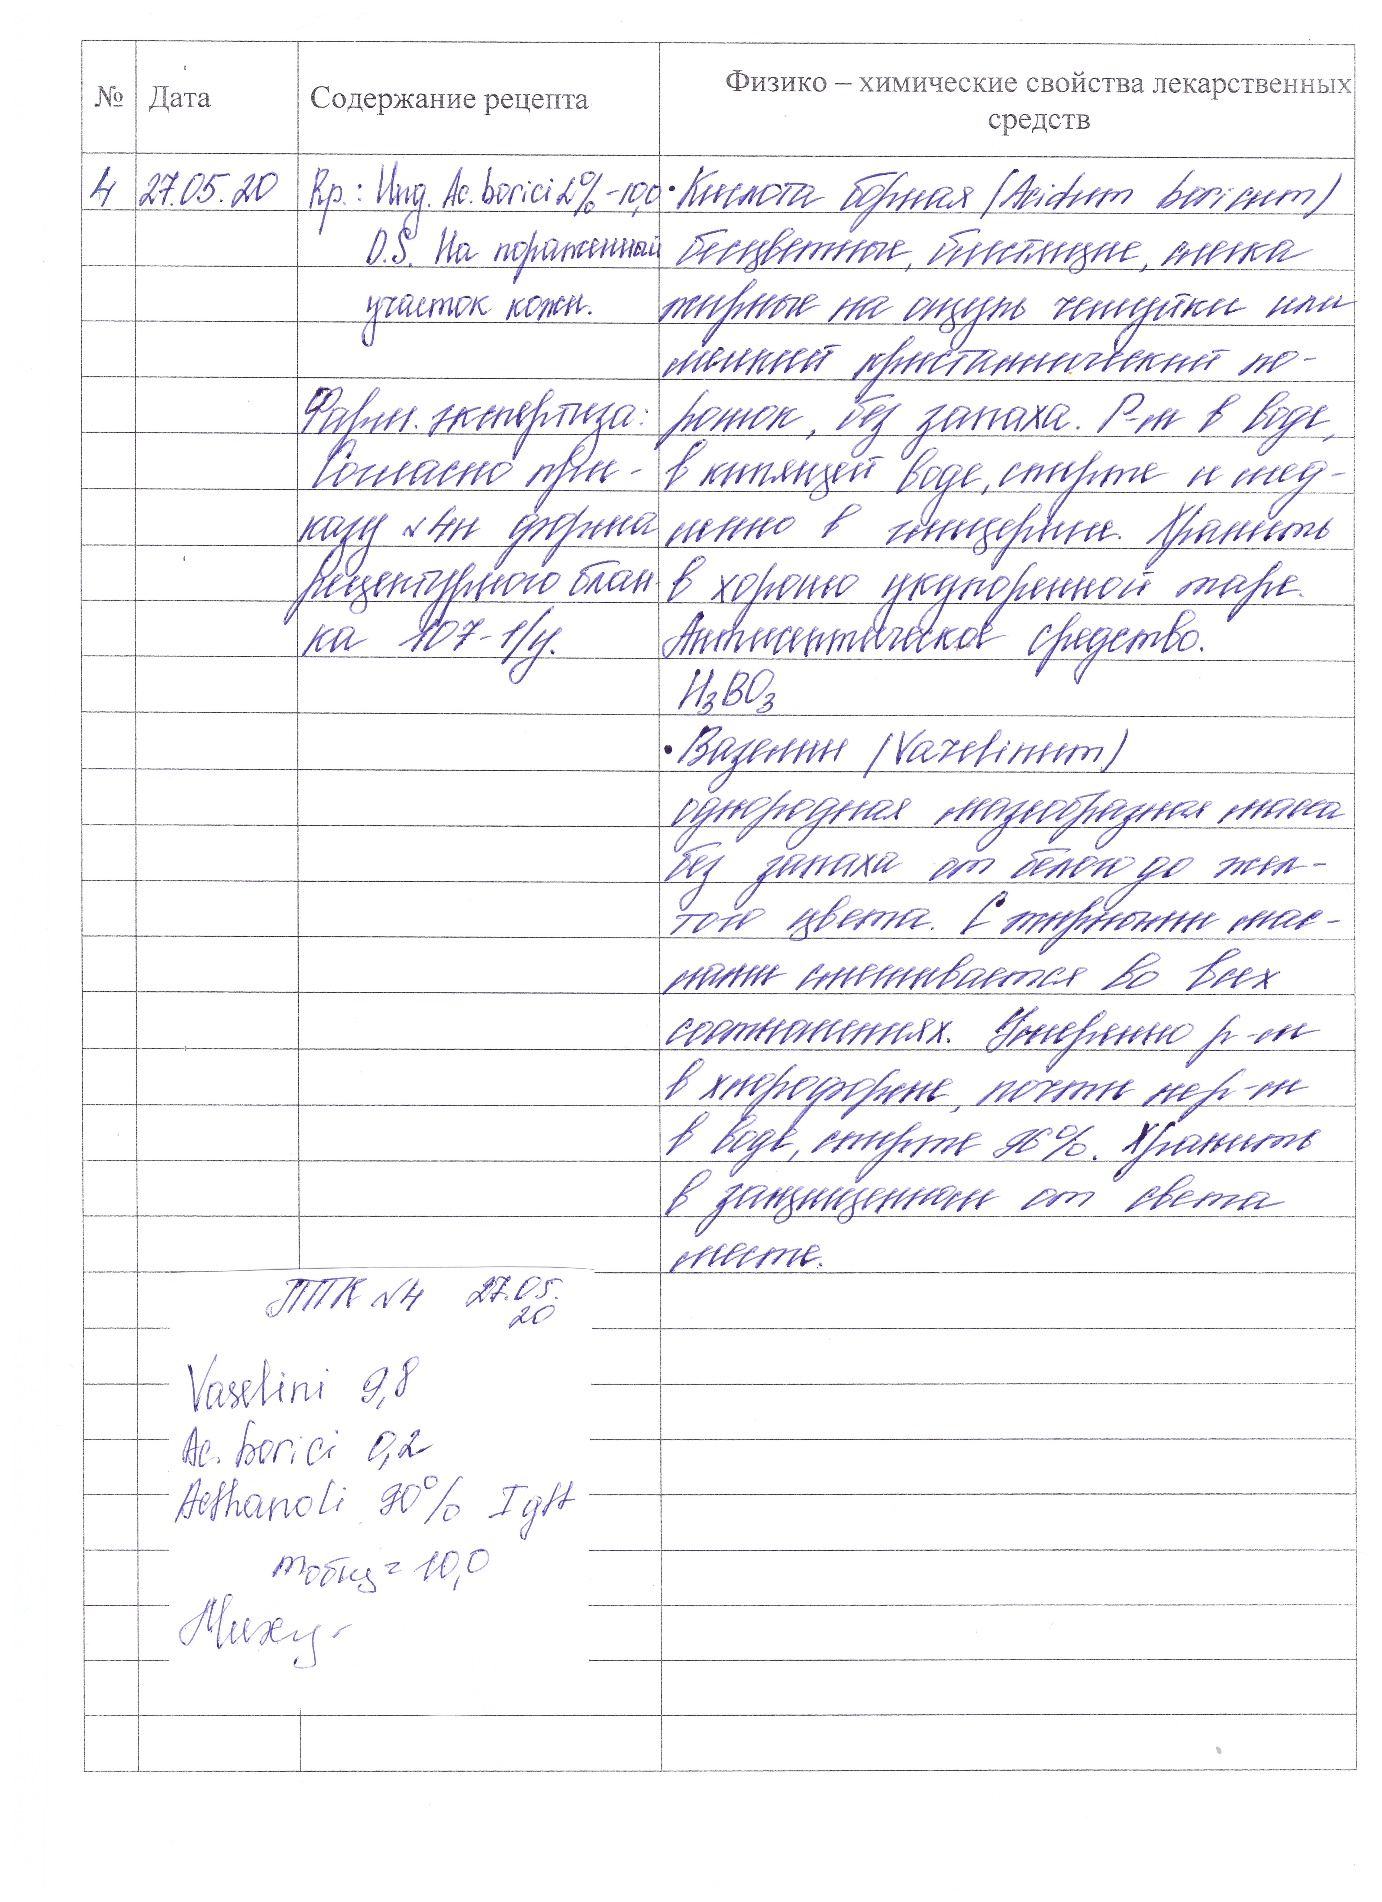 №
Дата
Содержание рецепта
Физико – химические свойства лекарственных
средств
4
27.05.20
Rp.: Ung. Ac. borici 2% - 10,0
D.S. На пораженный
участок кожи.
Фарм. экспертиза:
Согласно при-
казу №4н форма
рецептурного блан
ка 107-1/у.
• Кислота борная (Acidum boricum)
бесцветные, блестящие, слегка
жирные на ощупь чешуйки или
мелкий кристаллический по-
рошок, без запаха. Р-м в воде,
в кипящей воде, спирте и мед-
ленно в глицерине. Хранить
в хорошо укупоренной таре.
Антисептическое средство.
H₃BO₃
• Вазелин (Vazelinum)
однородная мазеобразная масса
без запаха от белого до жел-
того цвета. С жирными мас-
лами смешивается во всех
соотношениях. Умеренно р-м
в хлороформе, почти нер-м
в воде, спирте 96%. Хранить
в защищенном от света
месте.
ППК №4 27.05.
20
Vaselini 9,8
Ac. borici 0,2
Aethanoli 90% I gtt
mобщ = 10,0